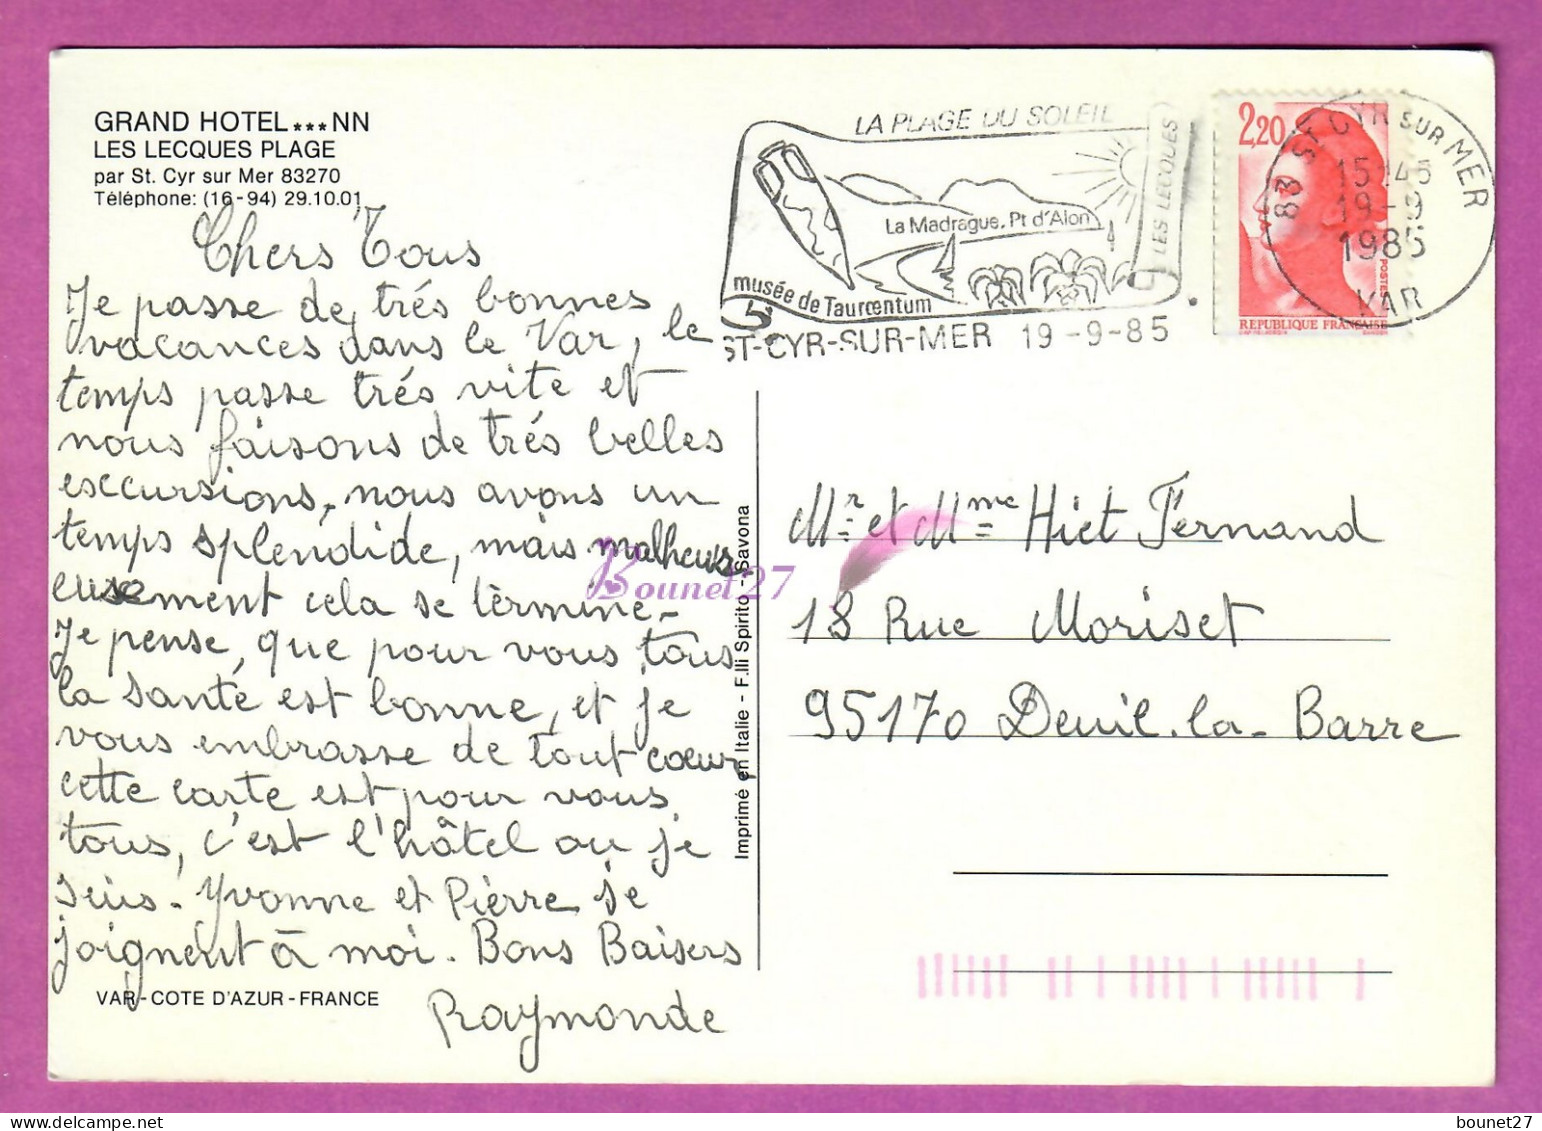 GRAND HOTEL***NN
LES LECQUES PLAGE
par St. Cyr sur Mer 83270
Téléphone: (16-94) 29.10.01
Chers Tous
Je passe de trés bonnes
vacances dans le Var, le
temps passe trés vite et
nous faisons de trés belles
exccursions, nous avons un
temps splendide, mais malheur
eusement cela se termine-
Je pense, que pour vous tous
la santé est bonne, et je
vous embrasse de tout coeur,
cette carte est pour vous
tous, c'est l'hôtel ou je
suis. Yvonne et Pierre se
joignent à moi. Bons Baisers
Raymonde
VAR - COTE D'AZUR - FRANCE
Imprimé en Italie - F.lli Spirito - Savona
LA PLAGE DU SOLEIL
LES LECQUES
La Madrague. Pt d'Alon
musée de Tauroentum
ST-CYR-SUR-MER 19-9-85
2,20
POSTES
REPUBLIQUE FRANÇAISE
83 ST CYR SUR MER
15H45
19-9
1985
VAR
Mr et Mme Hiet Fernand
18 Rue Moriset
95170 Deuil.la-Barre
Bounet27
bounet27